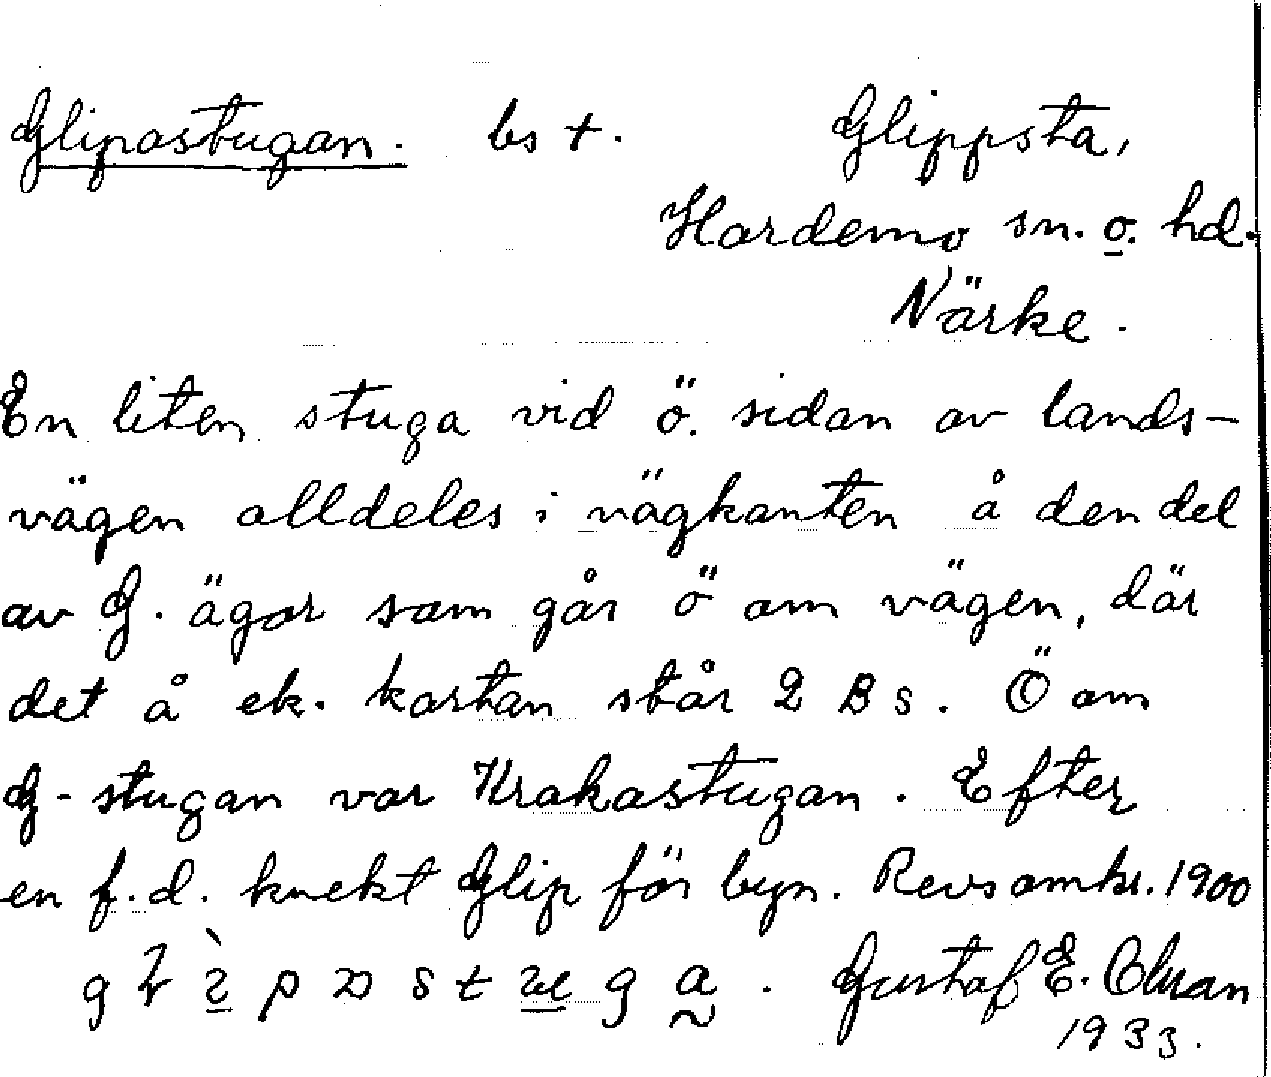 Glipastugan. bs +. Glippsta,
Hardemo sn. o. hd.
Närke.
En liten stuga vid ö. sidan av lands-
vägen alldeles i vägkanten å den del
av G. ägor som går ö om vägen, där
det å ek. kartan står 2 Bs. Ö om
G-stugan var Krakastugan. Efter
en f.d. knekt Glip för byn. Revs omkr. 1900
Gustaf E. Olsson
1933.